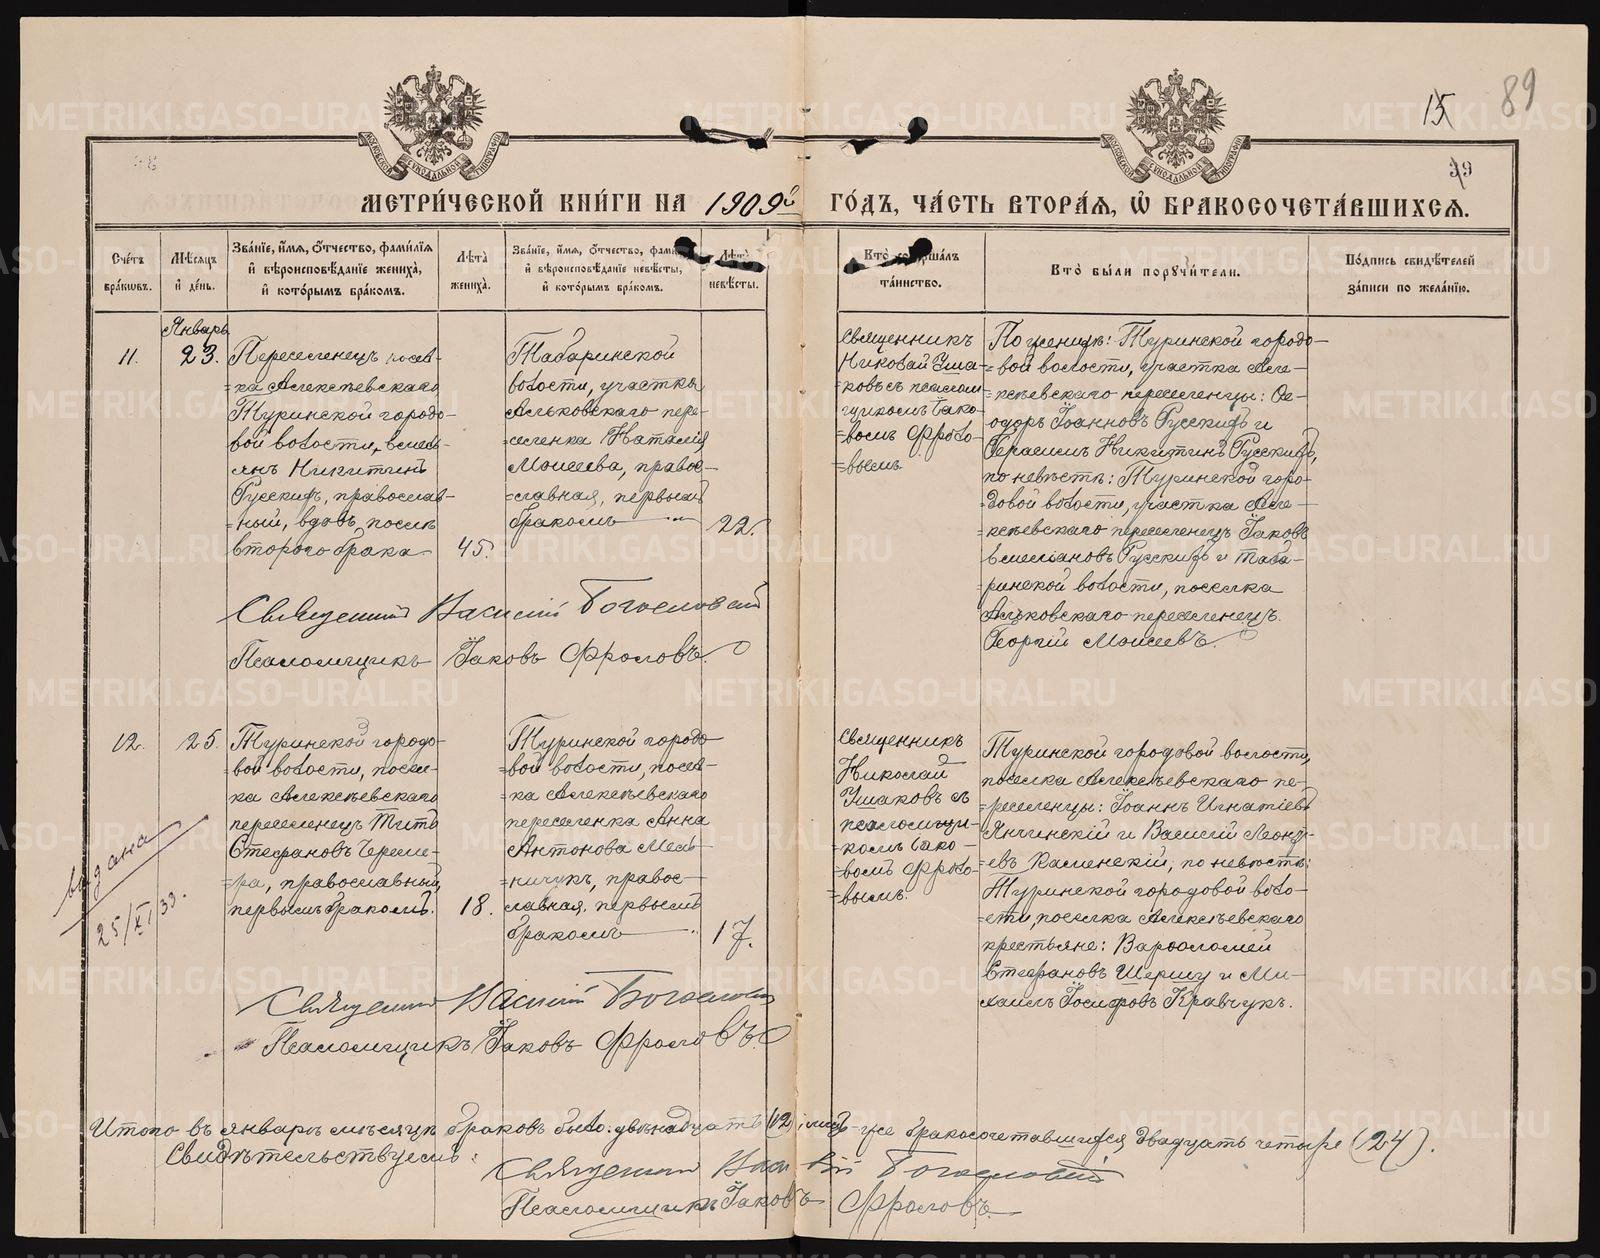 15
89
МЕТРИ́ЧЕСКОЙ КНИ́ГИ НА 1909й ГО́ДЪ, ЧА́СТЬ ВТОРА́Я, Ѡ БРАКОСОЧЕТА́ВШИХСЯ.
Сче́тъ бра́ковъ.
Мѣ́сяцъ и де́нь.
Зва́нїе, и́мя, ѻ́тчество, фами́лїя и вѣроисповѣ́данїе жениха̀, и кото́рымъ бра́комъ.
Лѣ́та жениха̀.
Зва́нїе, и́мя, ѻ́тчество, фами́лїя и вѣроисповѣ́данїе невѣ́сты, и кото́рымъ бра́комъ.
Лѣ́та невѣ́сты.
Кто̀ соверша́лъ та́инство.
Кто̀ бы́ли порꙋчи́тели.
По́дпись свидѣ́телей за́писи по жела́нїю.
Январь
11.
23.
Переселенецъ посел-
=ка Алексѣевскаго
Туринской городо-
вой волости, Емель-
янъ Никитинъ
Русскихъ, православ-
=ный, вдовъ послѣ
второго брака
45.
Табаринской
волости, участка
Альковскаго пере-
=селенка Наталія
Моисеева, право-
=славная, первымъ
бракомъ
22.
Священникъ
Николай Уша-
=ковъ съ псалом-
щикомъ Іако-
=вомъ Фроло-
=вымъ
По женихѣ: Туринской городо-
=вой волости, участка Але-
=ксѣевскаго переселенцы: Ѳе-
одоръ Іоанновъ Русскихъ и
Герасимъ Никитинъ Русскихъ,
по невѣстѣ: Туринской горо-
=довой волости, участка Але-
=ксѣевскаго переселенецъ Іаковъ
Емельяновъ Русскихъ и Таба-
=ринской волости, поселка
Альковскаго переселенецъ
Георгій Моисеевъ.
Священникъ Василій Богословскій
Псаломщикъ Іаковъ Фроловъ.
12.
25.
Туринской городо-
=вой волости, посел-
ка Алексѣевскаго
переселенецъ Титъ
Стефановъ Череме-
=ра, православный,
первымъ бракомъ.
18.
Туринской городо
=вой волости, посел-
=ка Алексѣевскаго
переселенка Анна
Антонова Мель-
=ничукъ, право-
славная, первымъ
бракомъ
17.
Священникъ
Николай
Ушаковъ съ
псаломщи-
=комъ Іако-
=вомъ Фроло-
=вымъ.
Туринской городовой волости,
поселка Алексѣевскаго пе-
=реселенцы: Іоаннъ Игнатіевъ
Янчинскій и Василій Леонть-
=евъ Каминскій, по невѣстѣ:
Туринской городовой воло-
=сти, поселка Алексѣевскаго
крестьяне: Варѳоломей
Стефановъ Шершу и Ми-
хаилъ Іосифовъ Кравчукъ.
выдана
25/XI 33.
Священникъ Василій Богословскій
Псаломщикъ Іаковъ Фроловъ.
Итого въ январѣ мѣсяцѣ браковъ было: двѣнадцать (12), лицъ-же бракосочетавшихся двадцать четыре (24).
Свидѣтельствуемъ:
Священникъ Василій Богословскій
Псаломщикъ Іаковъ Фроловъ.